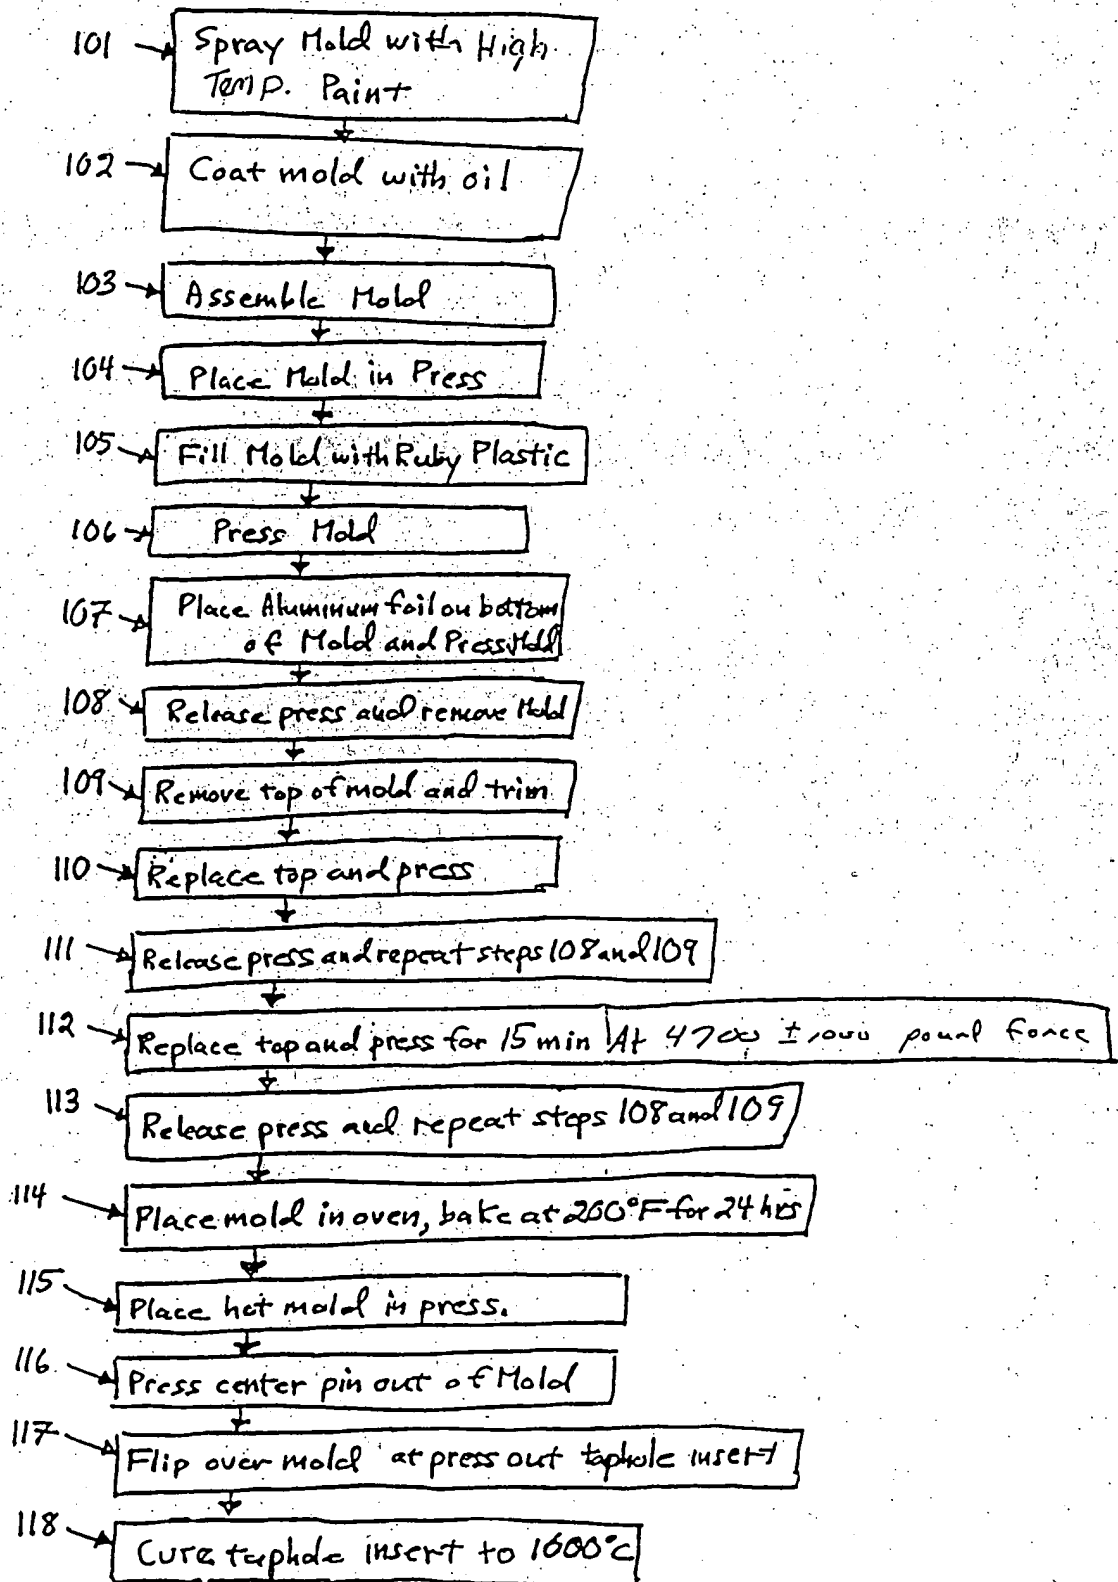 101 Spray Mold with High
Temp. Paint
102 Coat mold with oil
103 Assemble Mold
104 Place Mold in Press
105 Fill Mold with Ruby Plastic
106 Press Mold
107 Place Aluminum foil on bottom
of Mold and Press Mold
108 Release press and remove Mold
109 Remove top of mold and trim
110 Replace top and press
111 Release press and repeat steps 108 and 109
112 Replace top and press for 15 min At 4700 ±1000 pound force
113 Release press and repeat steps 108 and 109
114 Place mold in oven, bake at 200°F for 24 hrs
115 Place hot mold in press.
116 Press center pin out of Mold
117 Flip over mold at press out taphole insert
118 Cure taphole insert to 1600°C